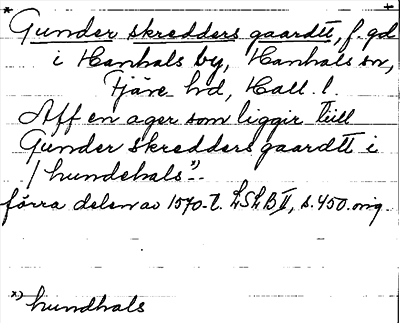 Gunder skredders gaardtt, f. gd
i Hanhals by, Hanhals sn,
Fjäre hd, Hall. l.
Aff en ager som liggir tiill
Gunder skredders gaardtt i
/ hundehals x) -
förra delen av 1570-t. LSLB II, s. 450. orig.
x) hundhals